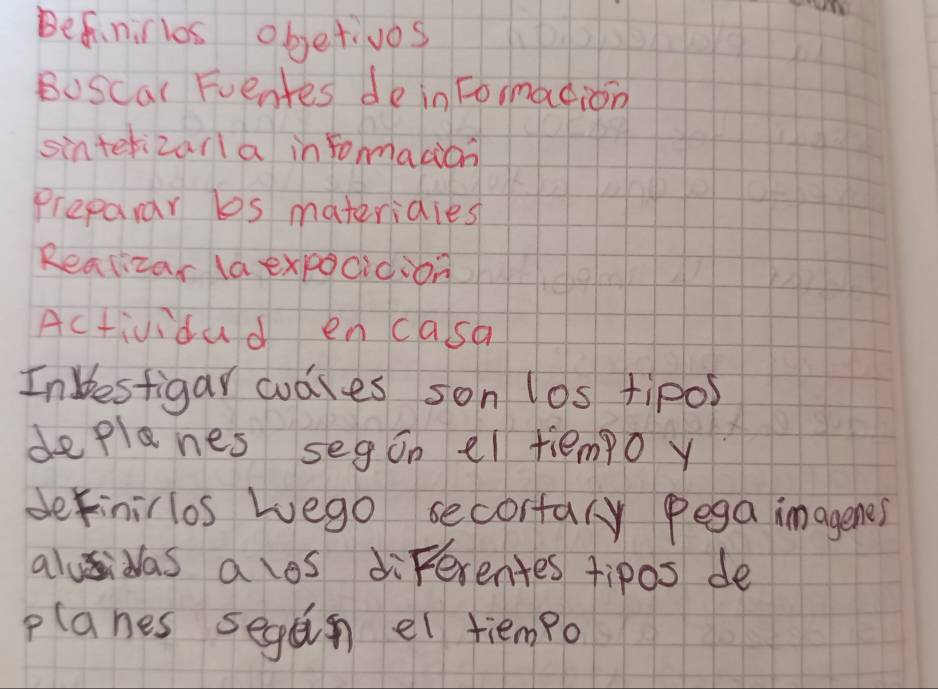 Definirlos objetivos
Buscar Fuentes de informacion
sintetizarla informacion
Preparar los materiales
Realizar la expocicion
Actividad en casa
Investigar cuáles son los tipos
de planes según el tiempo y
definirlos luego recortary pega imagenes
alusivas a los diferentes tipos de
planes según el tiempo